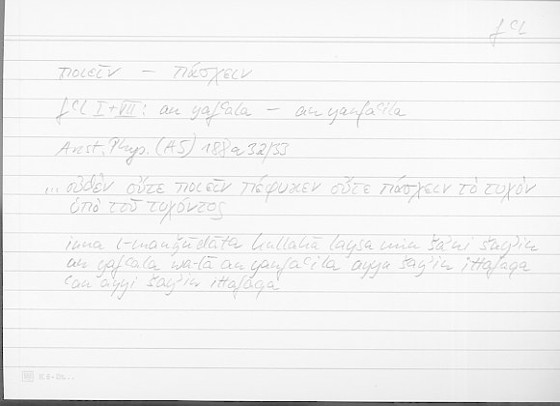 fʿl
ποιεῖν – πάσχειν
fʿl I + VII: an yafʿala – an yanfaʿila
Arist. Phys. (A5) 188 a 32/33
... οὐδὲν οὔτε ποιεῖν πέφυκεν οὔτε πάσχειν τὸ τυχὸν
ὑπὸ τοῦ τυχόντος
inna l-mauǧūdāti kullahā laysa min šaʾni šayʾin
an yafʿala wa-lā an yanfaʿila ayyu šayʾin ittafaqa
ʿan ayyi šayʾin ittafaqa